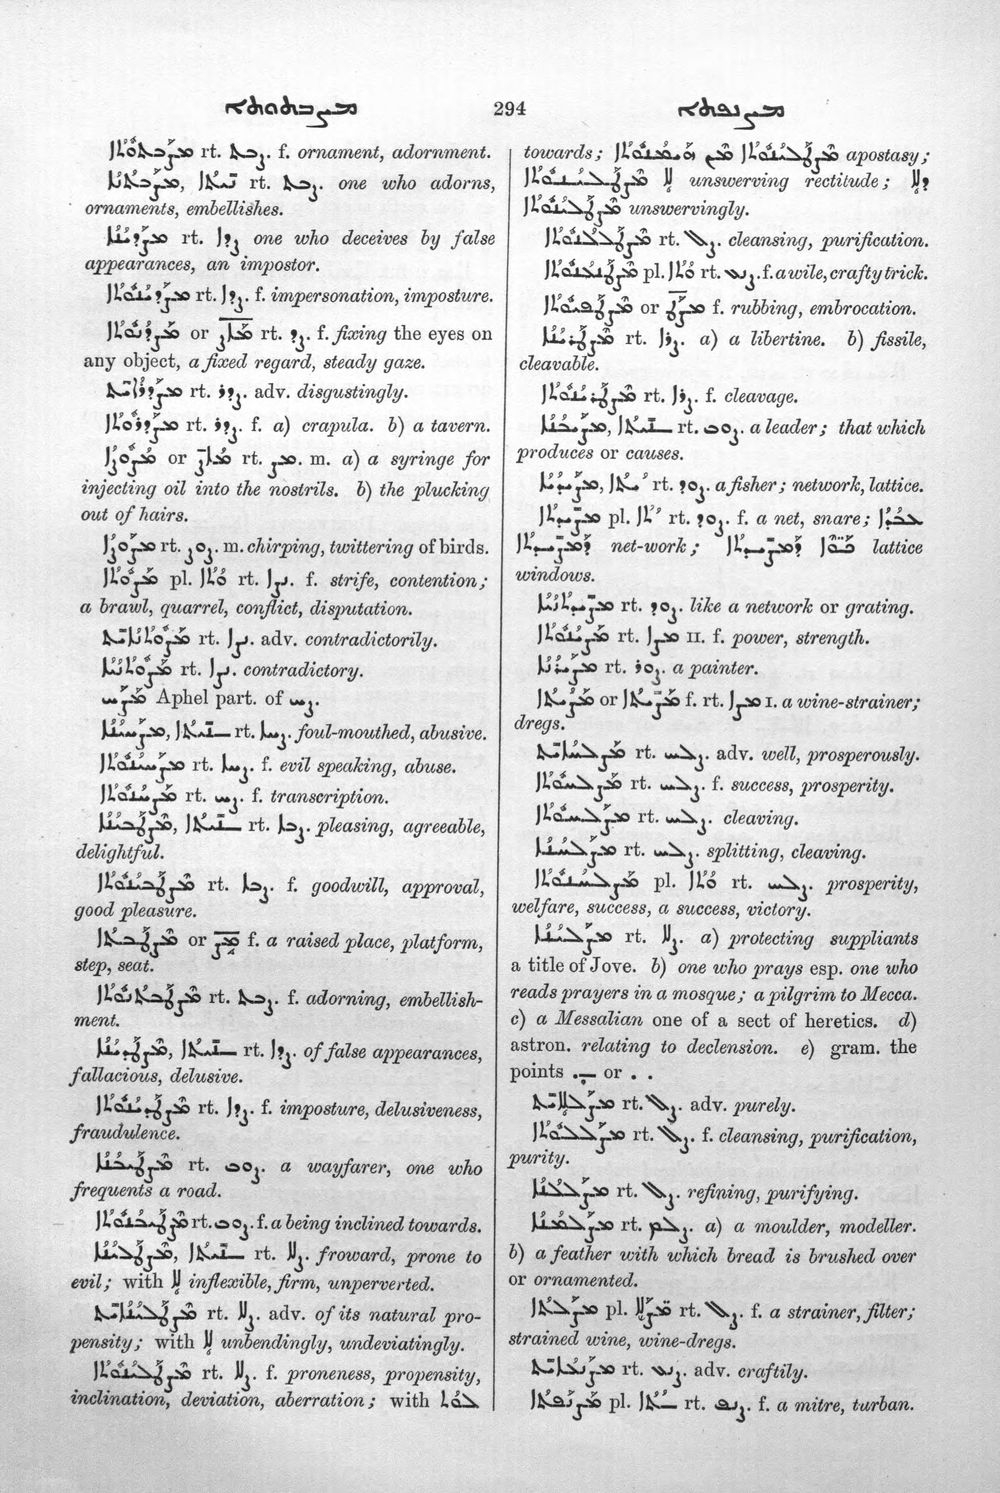 ܡܨܒܬܘܬܐ 294 ܡܨܢܦܬܐ
ܡܨܒܬܘܬܐ rt. ܨܒܬ. f. ornament, adornment.
ܡܨܒܬܢܐ, ܢܝܬܐ rt. ܨܒܬ. one who adorns,
ornaments, embellishes.
ܡܨܕܝܢܐ rt. ܨܕܐ one who deceives by false
appearances, an impostor.
ܡܨܕܝܢܘܬܐ rt. ܨܕܐ. f. impersonation, imposture.
or rt. ܨܕ. f. fixing the eyes on
any object, a fixed regard, steady gaze.
ܡܨܕܪܐܝܬ rt. ܨܕܪ. adv. disgustingly.
ܡܨܕܪܘܬܐ rt. ܨܕܪ. f. a) crapula. b) a tavern.
ܡܨܘܨܐ or rt. ܡܨ. m. a) a syringe for
injecting oil into the nostrils. b) the plucking
out of hairs.
ܡܨܘܨܐ rt. ܨܘܨ. m. chirping, twittering of birds.
ܡܨܘܬܐ pl. ܘܬܐ rt. ܢܨܐ. f. strife, contention;
a brawl, quarrel, conflict, disputation.
ܡܨܘܬܢܐܝܬ rt. ܢܨܐ. adv. contradictorily.
ܡܨܘܬܢܝܐ rt. ܢܨܐ. contradictory.
ܡܨܚ Aphel part. of ܨܚ.
ܡܨܚܝܢܐ, ܢܝܬܐ rt. ܨܚܐ. foul-mouthed, abusive.
ܡܨܚܝܢܘܬܐ rt. ܨܚܐ. f. evil speaking, abuse.
ܡܨܚܢܘܬܐ rt. ܨܚ. f. transcription.
ܡܨܛܒܝܢܐ, ܢܝܬܐ rt. ܨܒܐ. pleasing, agreeable,
delightful.
ܡܨܛܒܝܢܘܬܐ rt. ܨܒܐ. f. goodwill, approval,
good pleasure.
ܡܨܛܒܬܐ or f. a raised place, platform,
step, seat.
ܡܨܛܒܬܢܘܬܐ rt. ܨܒܬ. f. adorning, embellish-
ment.
ܡܨܛܕܝܢܐ, ܢܝܬܐ rt. ܨܕܐ. of false appearances,
fallacious, delusive.
ܡܨܛܕܝܢܘܬܐ rt. ܨܕܐ. f. imposture, delusiveness,
fraudulence.
ܡܨܛܝܒܢܐ rt. ܨܘܒ. a wayfarer, one who
frequents a road.
ܡܨܛܝܒܢܘܬܐ rt. ܨܘܒ. f. a being inclined towards.
ܡܨܛܠܝܢܐ, ܢܝܬܐ rt. ܨܠܐ. froward, prone to
evil; with ܠܐ inflexible, firm, unperverted.
ܡܨܛܠܝܢܐܝܬ rt. ܨܠܐ. adv. of its natural pro-
pensity; with ܠܐ unbendingly, undeviatingly.
ܡܨܛܠܝܢܘܬܐ rt. ܨܠܐ. f. proneness, propensity,
inclination, deviation, aberration; with ܠܘܬ
towards; ܡܨܛܠܝܢܘܬܐ ܡܢ ܗܝܡܢܘܬܐ apostasy;
ܡܨܛܠܝܢܘܬܐ ܠܐ unswerving rectitude; ܕܠܐ
ܡܨܛܠܝܢܘܬܐ unswervingly.
ܡܨܛܠܠܢܘܬܐ rt. ܨܠ. cleansing, purification.
ܡܨܛܢܥܢܘܬܐ pl. ܘܬܐ rt. ܨܢܥ. f. a wile, crafty trick.
ܡܨܛܦܝܘܬܐ or f. rubbing, embrocation.
ܡܨܛܪܝܢܐ rt. ܨܪܐ. a) a libertine. b) fissile,
cleavable.
ܡܨܛܪܝܢܘܬܐ rt. ܨܪܐ. f. cleavage.
ܡܨܝܒܢܐ, ܢܝܬܐ rt. ܨܘܒ. a leader; that which
produces or causes.
ܡܨܝܕܝܐ, ܝܬܐ rt. ܨܘܕ. a fisher; network, lattice.
ܡܨܝܕܬܐ pl. ܬܐ rt. ܨܘܕ. f. a net, snare; ܥܒܕܐ
ܕܡܨܝܕܬܐ net-work; ܟܘܐ ܕܡܨܝܕܬܐ lattice
windows.
ܡܨܝܕܬܢܝܐ rt. ܨܘܕ. like a network or grating.
ܡܨܝܢܘܬܐ rt. ܡܨܐ II. f. power, strength.
ܡܨܝܪܢܐ rt. ܨܘܪ. a painter.
ܡܨܝܬܐ or ܡܨܝܬܐ f. rt. ܡܨܐ I. a wine-strainer;
dregs.
ܡܨܠܚܐܝܬ rt. ܨܠܚ. adv. well, prosperously.
ܡܨܠܚܘܬܐ rt. ܨܠܚ. f. success, prosperity.
ܡܨܠܚܘܬܐ rt. ܨܠܚ. cleaving.
ܡܨܠܚܢܐ rt. ܨܠܚ. splitting, cleaving.
ܡܨܠܚܢܘܬܐ pl. ܘܬܐ rt. ܨܠܚ. prosperity,
welfare, success, a success, victory.
ܡܨܠܝܢܐ rt. ܨܠܐ. a) protecting suppliants
a title of Jove. b) one who prays esp. one who
reads prayers in a mosque; a pilgrim to Mecca.
c) a Messalian one of a sect of heretics. d)
astron. relating to declension. e) gram. the
points or . .
ܡܨܠܠܐܝܬ rt. ܨܠ. adv. purely.
ܡܨܠܠܘܬܐ rt. ܨܠ. f. cleansing, purification,
purity.
ܡܨܠܠܢܐ rt. ܨܠ. refining, purifying.
ܡܨܠܡܢܐ rt. ܨܠܡ. a) a moulder, modeller.
b) a feather with which bread is brushed over
or ornamented.
ܡܨܠܬܐ pl. ܡܨܠܐ rt. ܨܠ. f. a strainer, filter;
strained wine, wine-dregs.
ܡܨܢܥܐܝܬ rt. ܨܢܥ. adv. craftily.
ܡܨܢܦܬܐ pl. ܬܐ rt. ܨܢܦ. f. a mitre, turban.